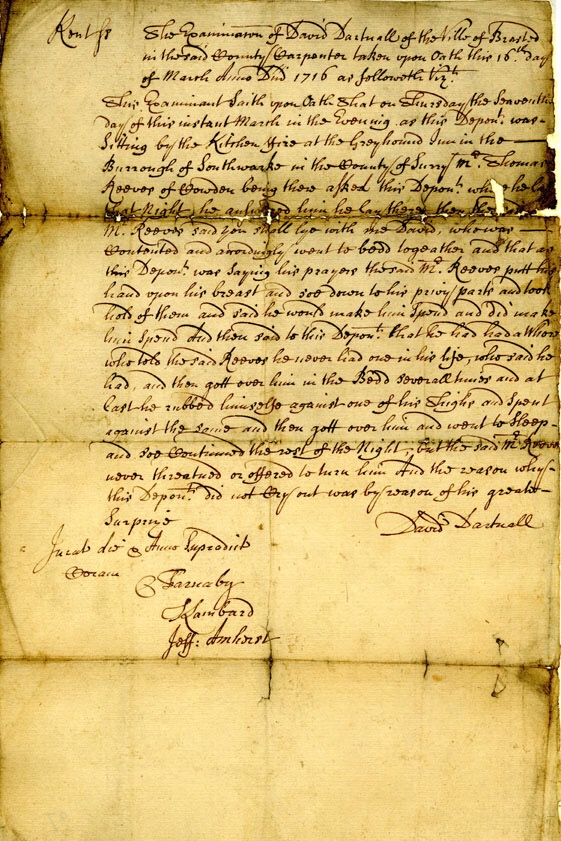 Kent ss
The Examination of David Dartnall of the Ville of Brasted
in the said County Carpenter taken upon Oath this 16th day
of March Anno Dni 1716 as followeth Vizt.
This Examinant Saith upon Oath That on Thursday the Seaventh
day of this instant March in the Evening as this Depont. was
Sitting by the Kitchen Fire at the Greyhound Inn in the
Burrough of Southwarke in the County of Surry Mr. Thomas
Reeves of Cowden being there asked this Depont. where he
that Night, he answered him he lay there, then the said
Mr. Reeves said you shall lye with me David, who was
Contented and accordingly went to bedd togeather and that as
this Depont. was Saying his prayers the said Mr. Reeves putt his
hand upon his breast and soe down to his privy parts and took
hold of them and said he would make him Spend and did make
him Spend And then said to this Depont. that he had had a Whore
who told the said Reeves he never had one in his life, who said he
had, and then gott over him in the Bedd severall times and at
last he rubbed himselfe against one of his Thighs and Spent
against the same and then gott over him and went to Sleep
and soe Continued the rest of the Night, but the said Mr. Reeves
never threatned or offered to turn him And the reason why
this Depont. did not Cry out was by reason of his greate
Surprize
David Dartnall
Jurat die & Anno Supradict
Coram
Farnaby
Lambard
Jeff: Amherst